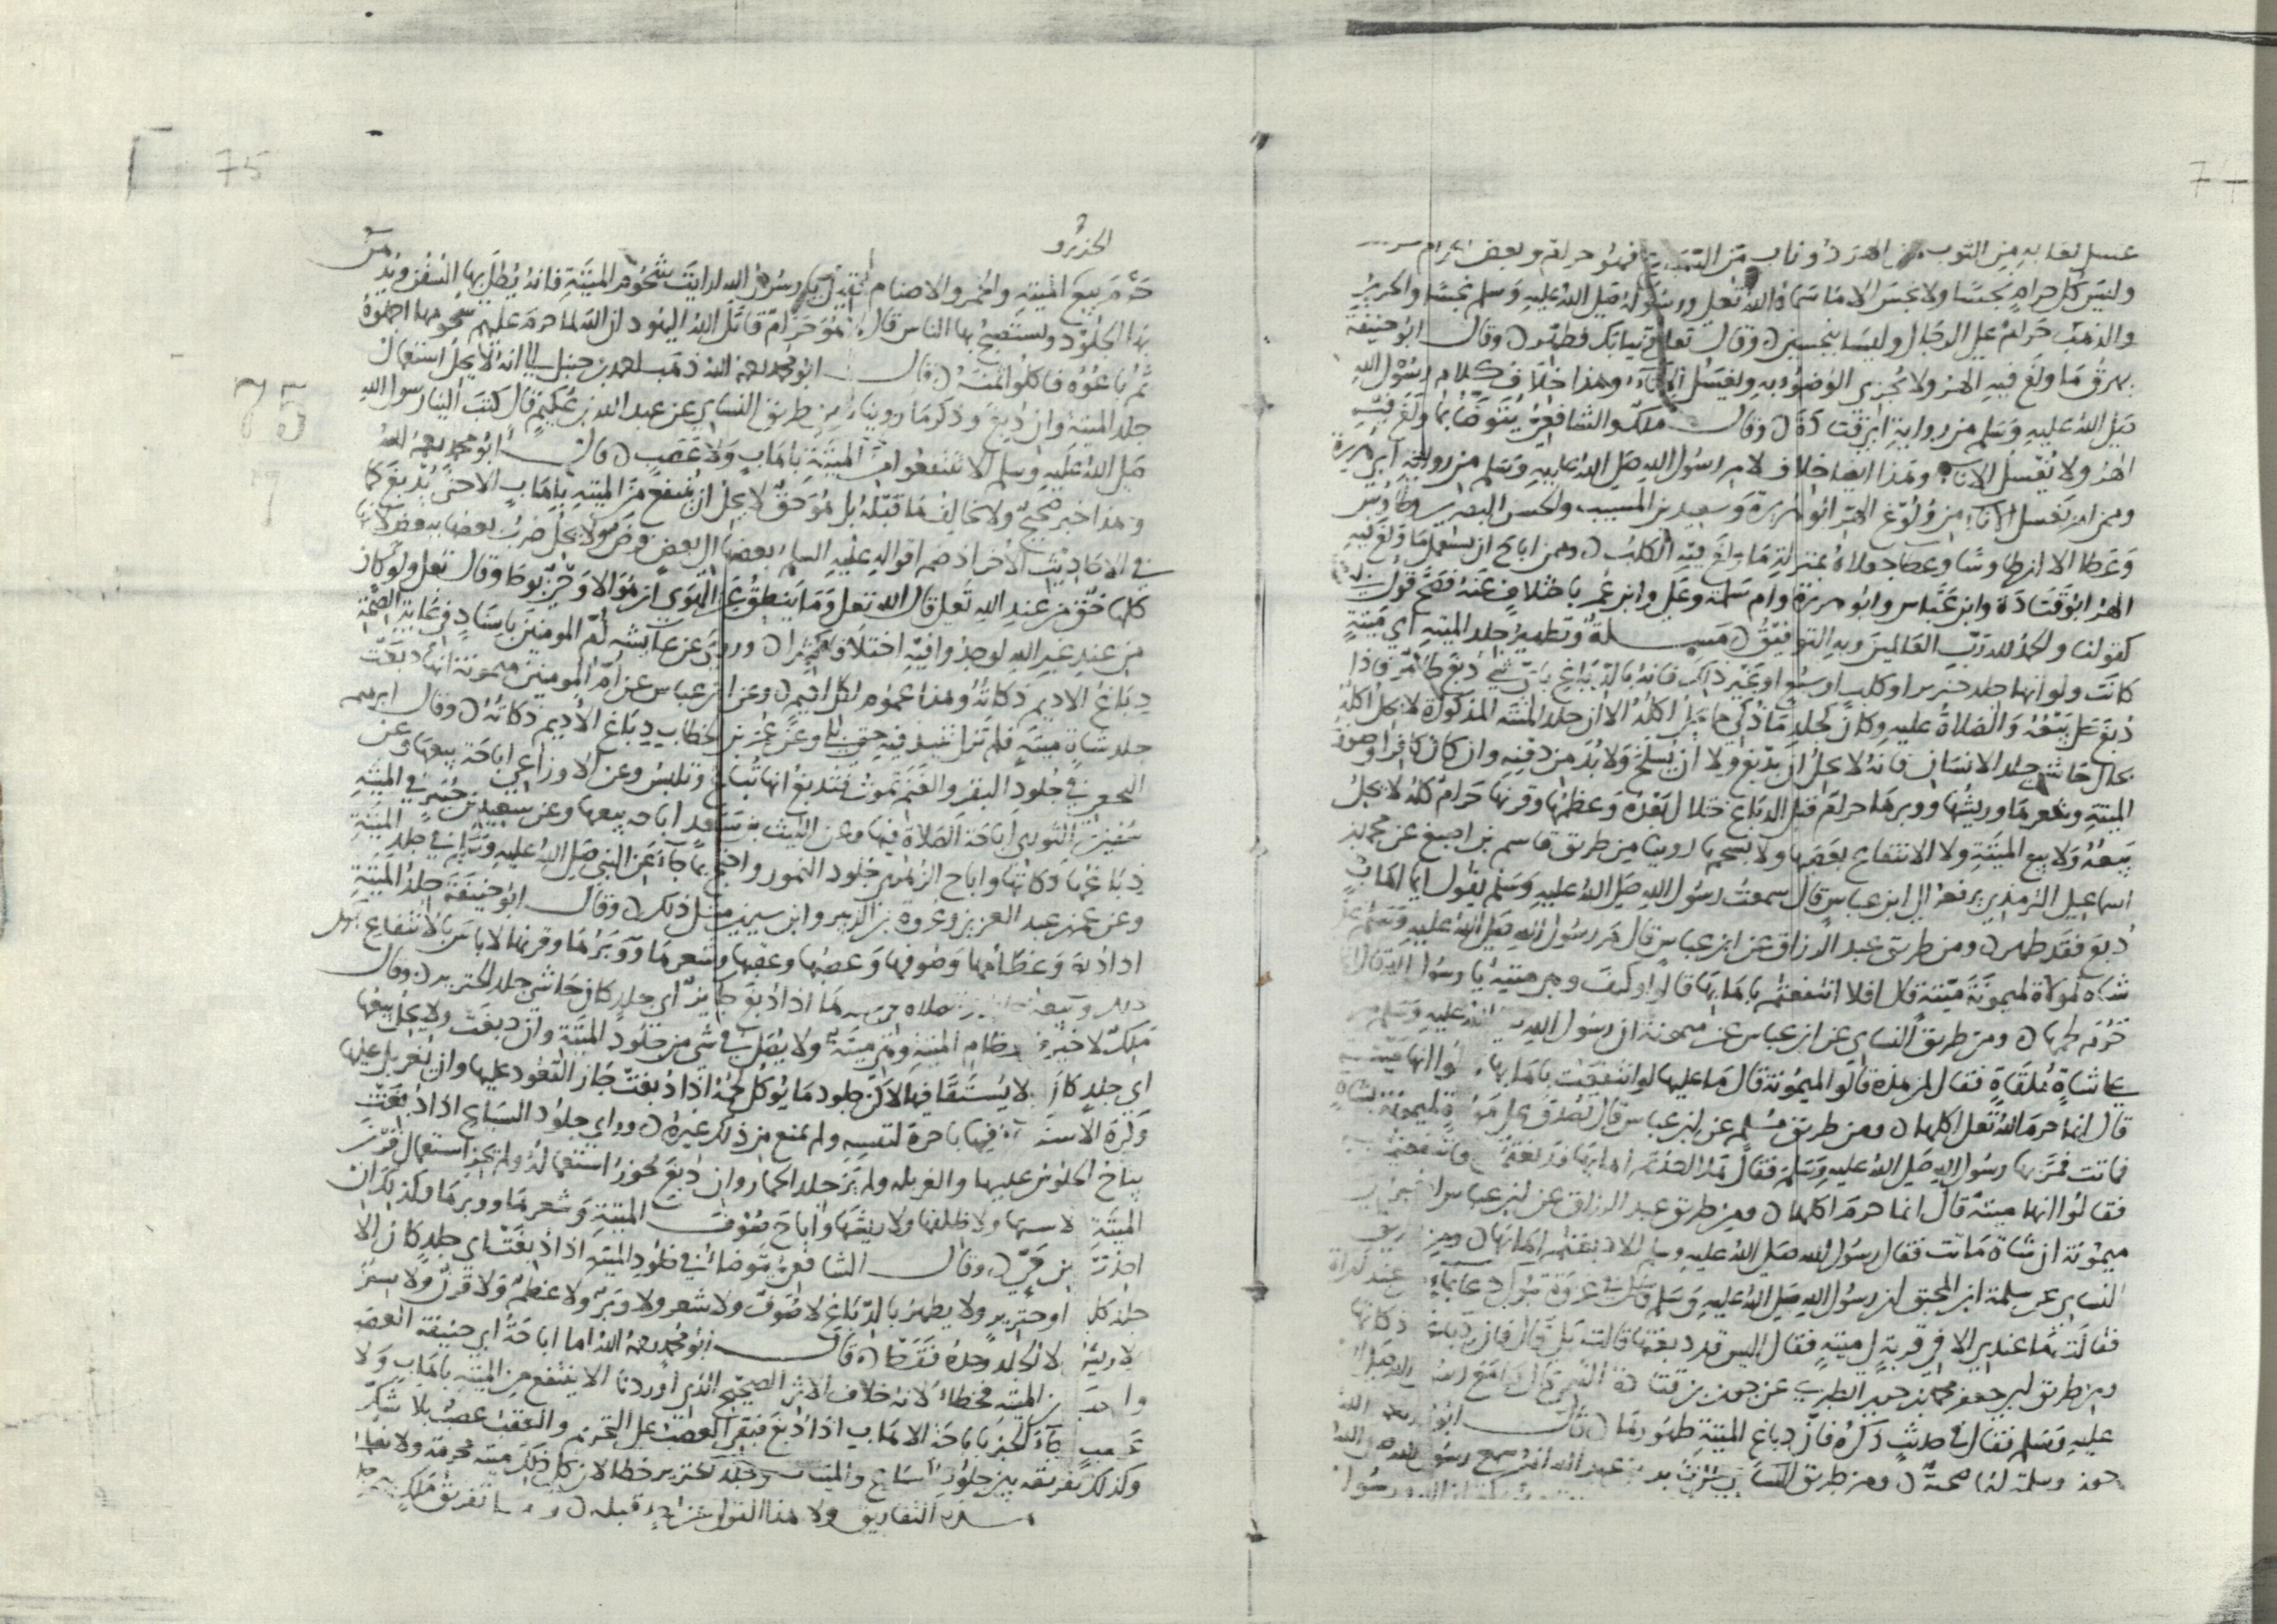 74
غسل لعابه من الثوب الهر ذو ناب من السباع فهو حرام وبعض الحرام
وليس كل حرام نجسا ولا نجس الا ما سماه الله تعلى ورسوله صلى الله عليه وسلم نجسا والحرير
والذهب حرام على الرجال وليسا بنجسين وقال تعلى وثيابك فطهر وقال ابو حنيفة
يهرق ما ولغ فيه الهر ولا يجزي الوضوء به ويغسل الاناء وهذا خلاف كلام رسول الله
صلى الله عليه وسلم من رواية ابي قتادة وقال ملك والشافعي يتوضا بما ولغ فيه
الهر ولا يغسل الاناء وهذا ايضا خلاف لامر رسول الله صلى الله عليه وسلم من رواية ابي هريرة
وممن امر بغسل الاناء من ولوغ الهر ابو هريرة وسعيد بن المسيب والحسن البصري وطاوس
وعطا الا ان طاوسا وعطا جعلاه بمنزلة ما ولغ فيه الكلب وممن اباح ان يستعمل ما ولغ فيه
الهر ابو قتادة وابن عباس وابو هريرة وام سلمة وعلي وابن عمر باختلاف عنه فصح قول
كقولنا والحمد لله رب العالمين وبه التوفيق مسلة وتطهير جلد الميتة اي ميتة
كانت ولو انها جلد خنزير او كلب او سبع او غير ذلك فانه بالدباغ باي شي دبغ طاهر فاذا
دبغ حل بيعه والصلاة عليه وكان كجلد ما ذكي مما يحل اكله الا ان جلد الميتة المذكورة لا يحل اكله
بحال حاشى جلد الانسان فانه لا يحل ان يدبغ ولا ان يسلخ ولا بد من دفنه وان كان كافرا وصوف
الميتة وشعرها وريشها ووبرها حرام قبل الدباغ حلال بعده وعظمها وقرنها حرام كله لا يحل
بيعه ولا بيع الميتة ولا الانتفاع بعصبها ولا بشحمها روينا من طريق قاسم بن اصبغ عن محمد بن
اسماعيل الترمذي يرفعه الى ابن عباس قال سمعت رسول الله صلى الله عليه وسلم يقول ايما اهاب
دبغ فقد طهر ومن طريق عبد الرزاق عن ابن عباس قال مر رسول الله صلى الله عليه وسلم على
شاه لمولاة لميمونة ميتة قال افلا انتفعتم باهابها قالوا وكيف وهي ميتة يا رسول الله قال انما
حرم لحمها ومن طريق النساي عن ابن عباس عن ميمونة ان رسول الله صلى الله عليه وسلم مر
على شاة ملقاة فقال لمن هذه قالوا لميمونة قال ما عليها لو انتفعت باهابها قالوا انها ميتة
قال انما حرم الله تعلى اكلها ومن طريق مسلم عن ابن عباس قال تصدق على مولاة لميمونة بشاة
فماتت فمر بها رسول الله صلى الله عليه وسلم فقال هلا اخذتم اهابها فدبغتموه فانتفعتم به
فقالوا انها ميتة قال انما حرم اكلها ومن طريق عبد الرزاق عن ابن عباس
ميمونة ان شاة ماتت فقال رسول الله صلى الله عليه وسلم الا دبغتم اهابها ومن طريق
النساي عن سلمة ابن المحبق ان رسول الله صلى الله عليه وسلم في غزوة تبوك دعا بماء عند امراة
فقالت ما عندي الا في قربة لي ميتة فقال اليس قد دبغتها قالت بلى قال فان دباغها ذكاتها
ومن طريق ابي جعفر محمد بن جرير الطبري عن جون بن قتادة التميمي قال كنا مع رسول الله صلى الله
عليه وسلم فقال في حديث ذكره فان دباغ الميتة طهورها قال ابو محمد رحمه الله
جون وسلمة لهما صحبة ومن طريق النساي عبد الله انه سمع رسول الله صلى الله
75
الخنزير و
حرم بيع الميتة والخمر والاصنام فقيل يا رسول الله ارايت شحوم الميتة فانه يطلى بها السفن ويدهن
بها الجلود ويستصبح بها الناس قال لا هو حرام قاتل الله اليهود ان الله لما حرم عليهم شحومها اجملوه
ثم باعوه فاكلوا ثمنه قال ابو محمد رحمه الله ذهب احمد بن حنبل الى انه لا يحل استعمال
جلد الميتة وان دبغ وذكر ما رويناه من طريق النساي عن عبد الله بن عكيم قال كتب الينا رسول الله
صلى الله عليه وسلم الا تنتفعوا من الميتة باهاب ولا عصب قال ابو محمد رحمه الله
وهذا خبر صحيح ولا يخالف ما قبله بل هو حق لا يحل ان ينتفع من الميتة باهاب الا حتى يدبغ كما
في الاحاديث الاخر اذ ضم اقواله عليه السلم بعضها الى بعض فرض ولا يحل ضرب بعضها ببعض لانها
كلها حق من عند الله تعلى قال الله تعلى وما ينطق عن الهوى ان هو الا وحي يوحى وقال تعلى ولو كان
من عند غير الله لوجدوا فيه اختلافا كثيرا وروي عن عايشة ام المومنين باسناد في غاية الصحة
دباغ الاديم ذكاته وهذا عموم لكل اديم وعن ابن عباس عن ام المومنين ميمونة انها دبغت
جلد شاة ميتة فلم تزل تنبذ فيه حتى بلي وعن عمر بن الخطاب دباغ الاديم ذكاته وقال ابرهيم
النخعي في جلود البقر والغنم تموت فتدبغ انها تباع وتلبس وعن الاوزاعي اباحة بيعها وعن
سفين الثوري اباحة الصلاة فيها وعن الليث بن سعد اباحة بيعها وعن سعيد بن جبير في الميتة
دباغها ذكاتها واباح الزهري جلود النمور واحتج بما جاء عن النبي صلى الله عليه وسلم في جلد الميتة
وعن عمر بن عبد العزيز وعروة بن الزبير وابن سيرين مثل ذلك وقال ابو حنيفة جلد الميتة
اذا دبغ وعظامها وصوفها وعصبها وعقبها وشعرها ووبرها وقرنها لا باس بالانتفاع بكل
ذلك وبيعه والصلاه في جلدها اذا دبغ جايز اي جلد كان حاشى جلد الخنزير وقال
ملك لا خير في عظام الميتة وهي ميتة ولا يصلى في شي من جلود الميتة وان دبغت ولا يحل بيعها
اي جلد كان لا يستقا فيها لاكن جلود ما يوكل لحمه اذا دبغت جاز القعود عليها وان يغربل عليها
وكره الاستقاء فيها باخرة لنفسه ولم يمنع من ذلك غيره وراى جلود السباع اذا دبغت
يباح الجلوس عليها والغربله ولم ير جلد الحمار وان دبغ يجوز استعماله ولم يجز استعمال قرن
الميتة ولا سنها ولا ظلفها ولا ريشها واباح صوف الميتة وشعرها ووبرها وكذلك ان
اخذت من حي وقال الشافعي يتوضا في جلود الميتة اذا دبغت اي جلد كان الا
جلد كلب او خنزير ولا يطهر بالدباغ لا صوف ولا شعر ولا وبر ولا عظم ولا قرن ولا سن
ولا ريش الا الجلد وحده فقط قال ابو محمد رحمه الله اما اباحة ابي حنيفة العصب
والعقب من الميتة فخطا لانه خلاف الاثر الصحيح الذي اوردنا الا ينتفع من الميتة باهاب ولا
عصب جاء الخبر باباحة الاهاب اذا دبغ فبقي العصب على التحريم والعقب عصب بلا شك
وكذلك تفريقه بين جلود السباع والميتات وجلد الخنزير خطا لان كل ذلك ميتة محرمة ولا نعلم
هذه التفاريق ولا هذا القول عن احد قبله و تفريق ملك بين جلد